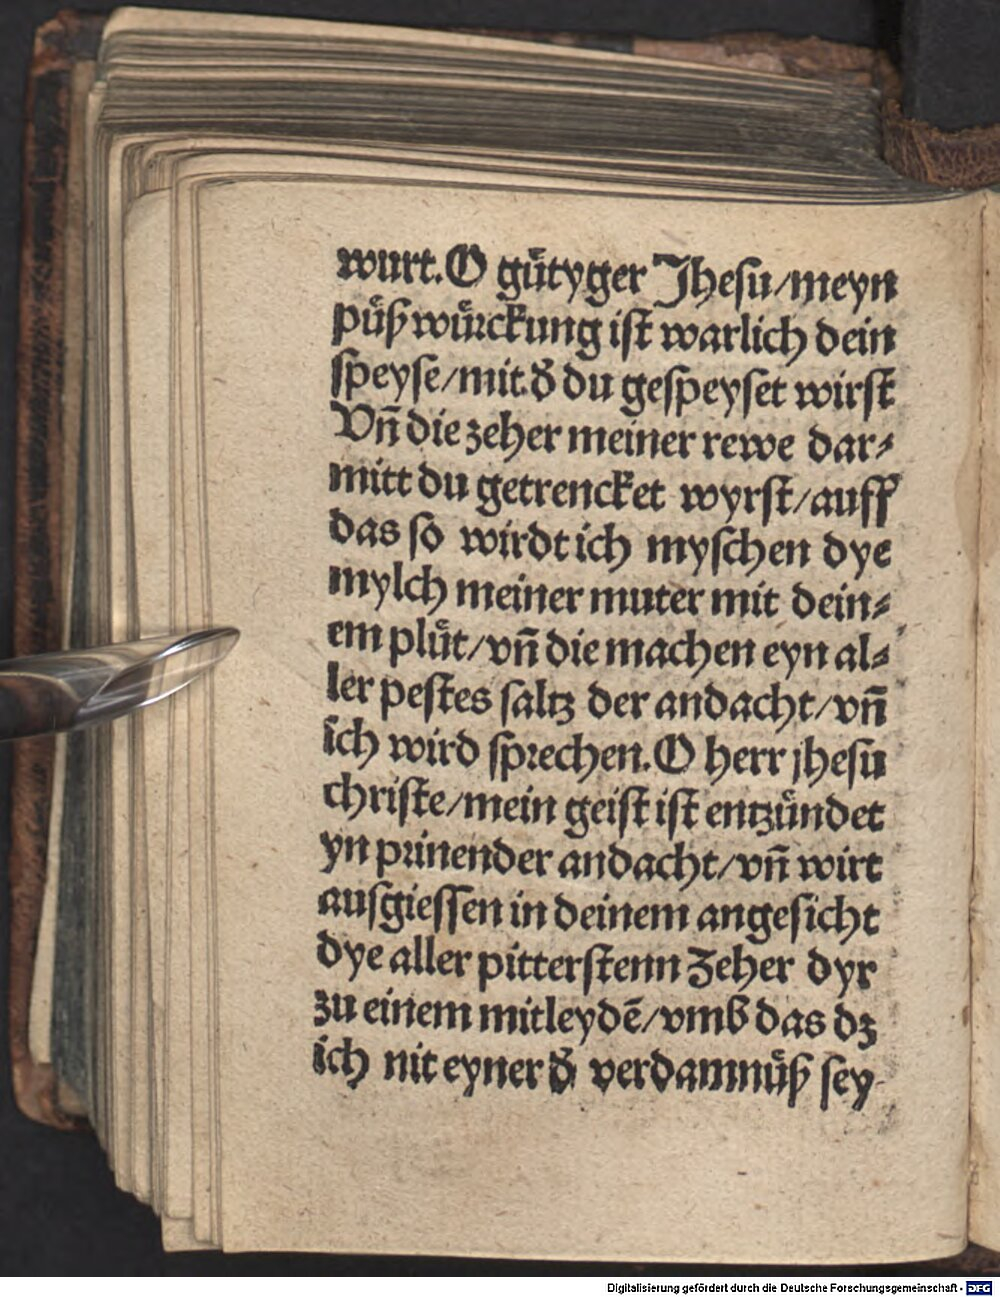 wurt. O guͤtyger Jhesu/meyn
puͤß wuͤrckung ist warlich dein
speyse/mit đ du gespeyset wirst
Vñ die zeher meiner rewe dar⸗
mitt du getrencket wyrst/auff
das so wirdt ich myschen dye
mylch meiner muter mit dein⸗
em pluͤt/vñ die machen eyn al⸗
ler pestes saltz der andacht/vñ
ich wird sprechen. O herr jhesu
christe/mein geist ist entzuͤndet
yn prinender andacht/vñ wirt
ausgiessen in deinem angesicht
dye aller pitterstenn Zeher dyr
zu einem mitleydē/vmb das dz
ich nit eyner đ verdamnuͤß sey
Digitalisierung gefördert durch die Deutsche Forschungsgemeinschaft - DFG